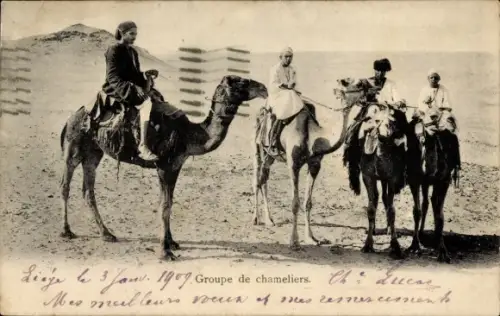 Liège 3 Janv. 1909 Groupe de chameliers. Ch: Lucas
Mes meilleurs voeux et mes remerciements